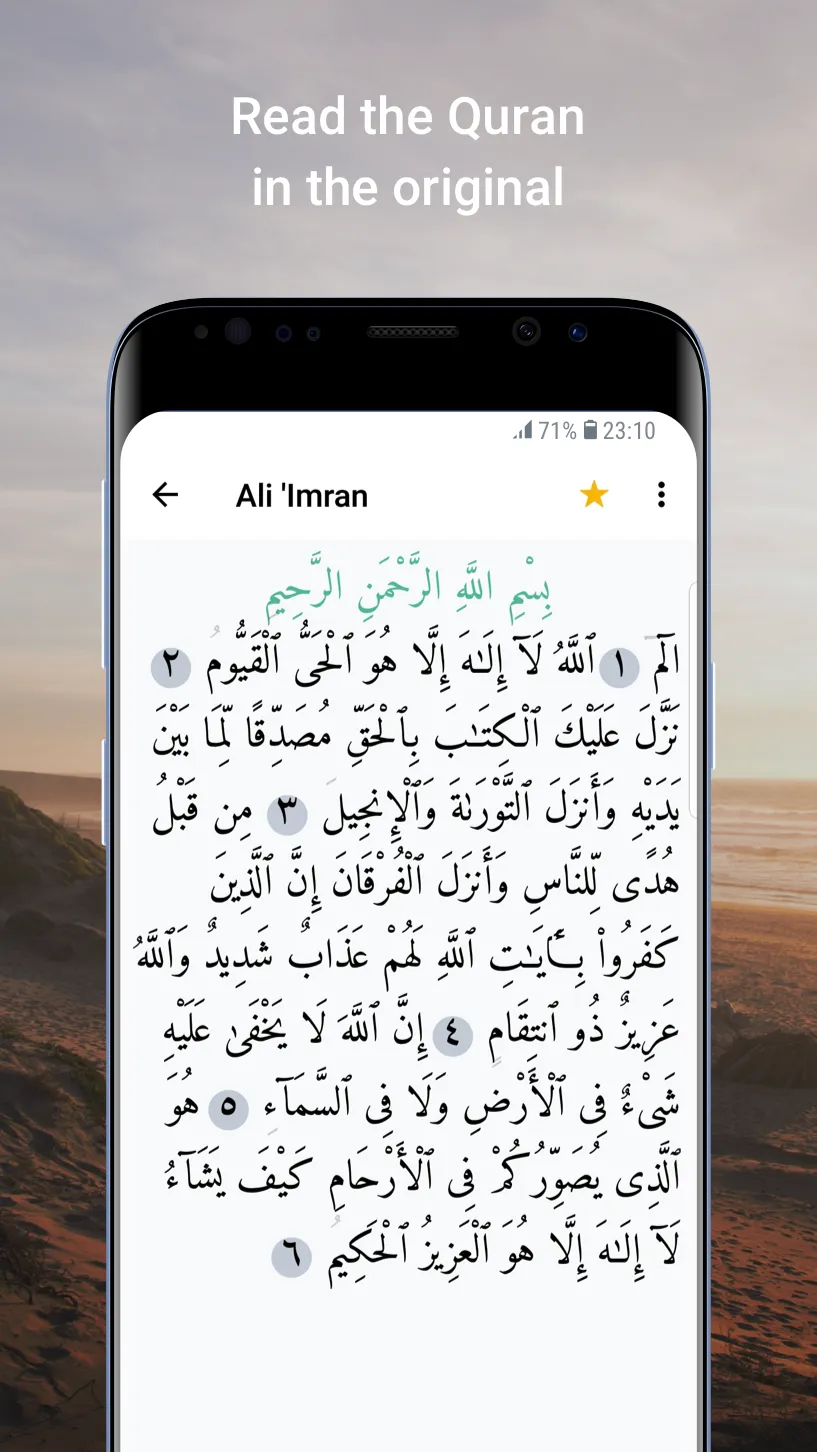 Read the Quran
in the original
71% 23:10
Ali 'Imran
بِسْمِ اللَّهِ الرَّحْمَنِ الرَّحِيمِ
الٓمٓ ١ ٱللَّهُ لَآ إِلَـٰهَ إِلَّا هُوَ ٱلْحَىُّ ٱلْقَيُّومُ ٢
نَزَّلَ عَلَيْكَ ٱلْكِتَـٰبَ بِٱلْحَقِّ مُصَدِّقًا لِّمَا بَيْنَ
يَدَيْهِ وَأَنزَلَ ٱلتَّوْرَىٰةَ وَٱلْإِنجِيلَ ٣ مِن قَبْلُ
هُدًى لِّلنَّاسِ وَأَنزَلَ ٱلْفُرْقَانَ إِنَّ ٱلَّذِينَ
كَفَرُوا۟ بِـَٔايَـٰتِ ٱللَّهِ لَهُمْ عَذَابٌ شَدِيدٌ وَٱللَّهُ
عَزِيزٌ ذُو ٱنتِقَامٍ ٤ إِنَّ ٱللَّهَ لَا يَخْفَىٰ عَلَيْهِ
شَىْءٌ فِى ٱلْأَرْضِ وَلَا فِى ٱلسَّمَآءِ ٥ هُوَ
ٱلَّذِى يُصَوِّرُكُمْ فِى ٱلْأَرْحَامِ كَيْفَ يَشَآءُ
لَآ إِلَـٰهَ إِلَّا هُوَ ٱلْعَزِيزُ ٱلْحَكِيمُ ٦